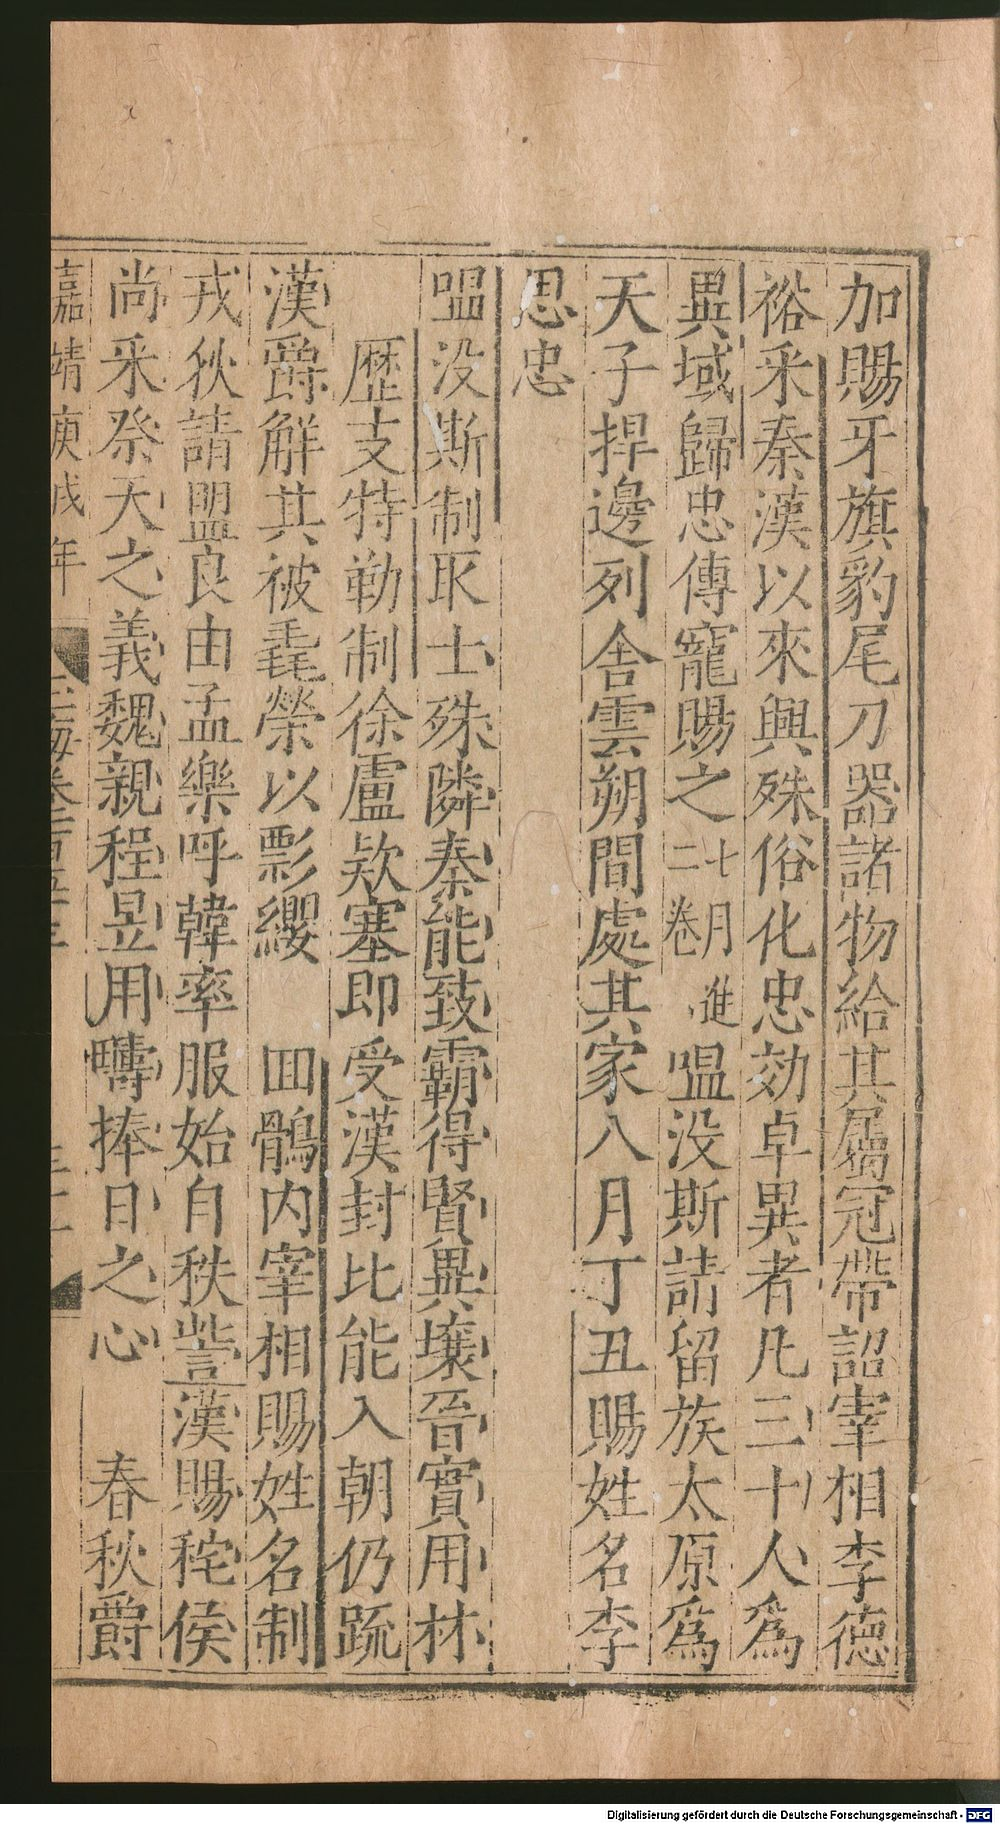 加賜牙旗豹尾刀器諸物給其屬冠帶詔宰相李德
裕釆秦漢以來興殊俗化忠効卓異者凡三十人爲
異域歸忠傳寵賜之七月進二卷嗢没斯請留族太原爲
天子捍邊列舎雲朔間處其家八月丁丑賜姓名李
思忠
嗢没斯制取士殊隣秦能致霸得賢異壤晉實用林
歷支特勒制徐盧欵塞即受漢封比能入朝仍䟽
漢爵解其被毳榮以影纓　回鶻内宰相賜姓名制
戎狄請盟良由孟樂呼韓率服始自秩訾漢賜秺侯
尚釆祭天之義魏親程昱用疇捧日之心　春秋爵
嘉靖庚戌年
玉海卷一百五十三
Digitalisierung gefördert durch die Deutsche Forschungsgemeinschaft - DFG